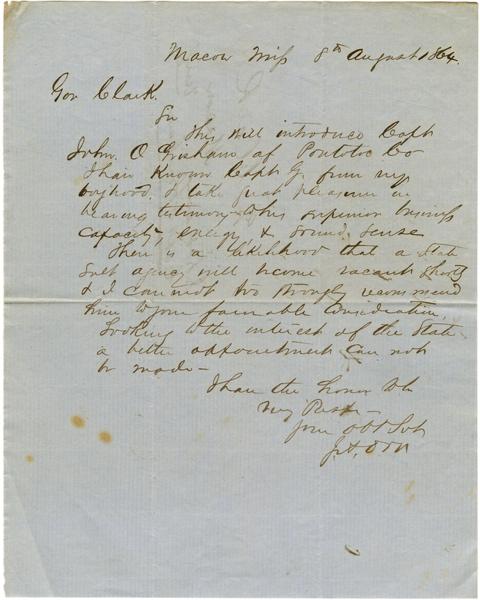 Macon Miss 8th August 1864.
Gov Clark.
Sir
This will introduce Capt
John O Grisham of Pontotoc Co
I have Known Capt G. from my
boyhood. I take great pleasure in
bearing testimony to his superior business
capacity, energy & sound sense
There is a likelihood that a State
Salt agency will become vacant shortly
& I can not too strongly recommend
him to your favorable consideration.
Looking to the interest of the State
a better appointment can not
be made -
I have the honor to be
Very Resp -
your obt Svt
J. A. Orr